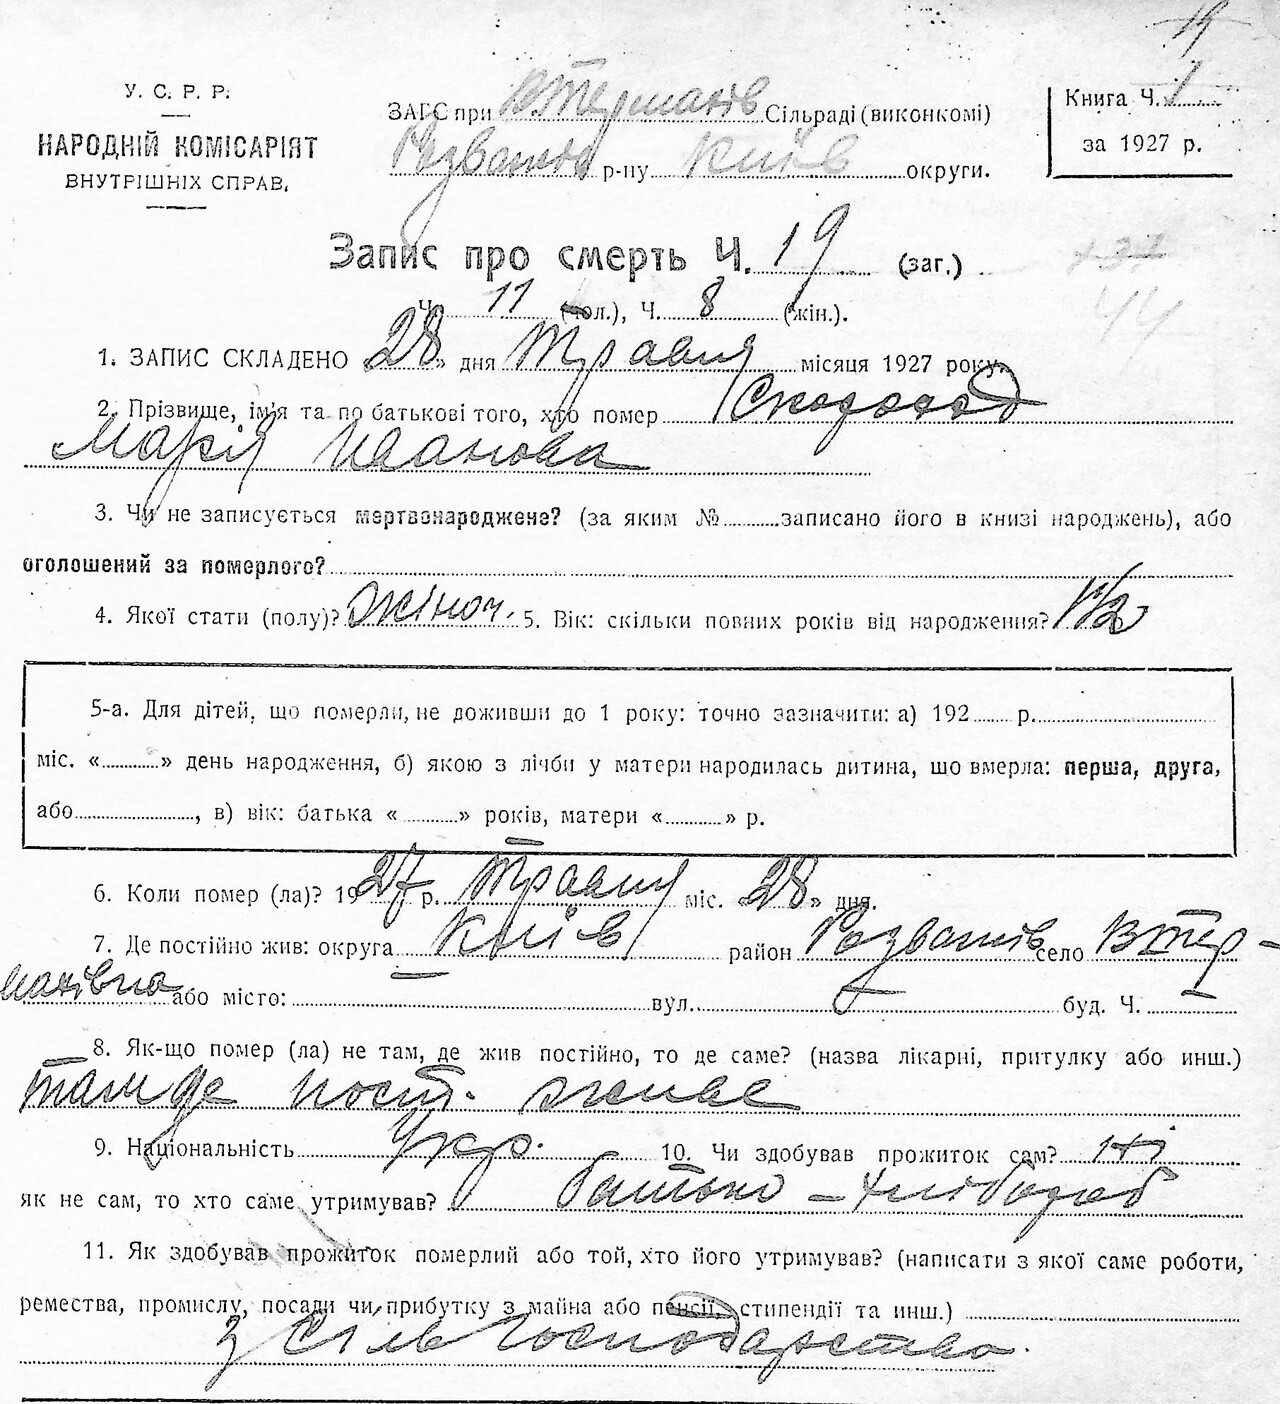 19
У. С. Р. Р.
НАРОДНІЙ КОМІСАРІЯТ
ВНУТРІШНІХ СПРАВ.
ЗАГС при Втермахів Сільраді (виконкомі)
Розважів р-ну Київ округи.
Книга Ч. 1
за 1927 р.
Запис про смерть Ч. 19 (заг.)
+37
44
Ч. 11 (чол.), Ч. 8 (жін.).
1. ЗАПИС СКЛАДЕНО «28» дня Травня місяця 1927 року.
2. Прізвище, ім'я та по батькові того, хто помер Скородод
Марія Іванова
3. Чи не записується мертвонароджене? (за яким № записано його в книзі народжень), або
оголошений за померлого?
4. Якої стати (полу)? Жіноч. 5. Вік: скільки повних років від народження? 1 1/2
5-а. Для дітей, що померли, не доживши до 1 року: точно зазначити: а) 192 р.
міс. « » день народження, б) якою з лічби у матери народилась дитина, що вмерла: перша, друга,
або , в) вік: батька « » років, матери « » р.
6. Коли помер (ла)? 1927 р. Травня міс. «28» дня.
7. Де постійно жив: округа Київ район Розважів село Втер-
махівна або місто: вул. буд. Ч. —
8. Як-що помер (ла) не там, де жив постійно, то де саме? (назва лікарні, притулку або инш.)
там де пост. живе
9. Національність Укр. 10. Чи здобував прожиток сам? Ні
як не сам, то хто саме утримував? батько - хлібороб
11. Як здобував прожиток померлий або той, хто його утримував? (написати з якої саме роботи,
ремества, промислу, посади чи прибутку з майна або пенсії, стипендії та инш.)
З Сіль Господарства.